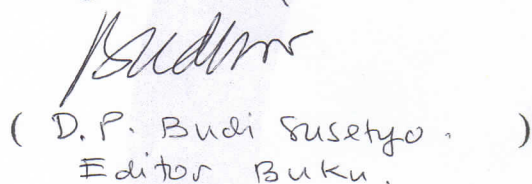 ( D. P. Budi Susetyo. )
Editor Buku.